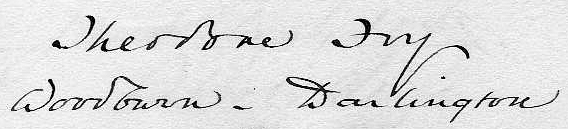 Theodore Fry
Woodburn - Darlington